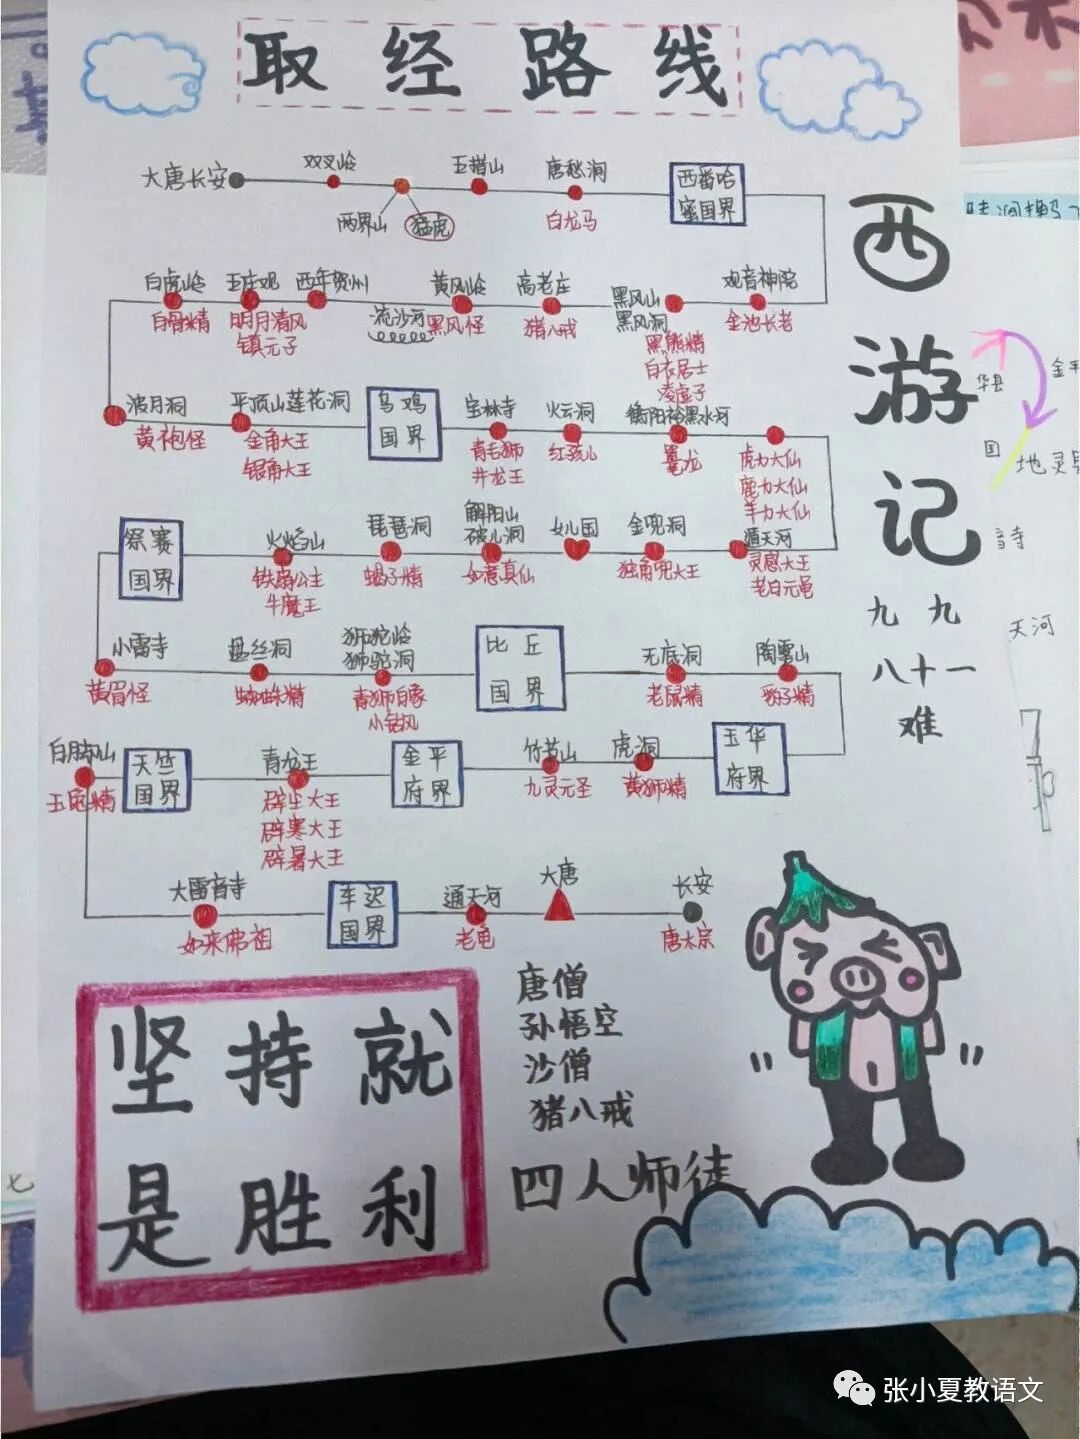 取经路线
大唐长安
双叉岭
两界山
猛虎
五指山
唐愁涧
白龙马
西番哈
蜜国界
白虎岭
白骨精
五庄观
明月清风
镇元子
西牛贺州
流沙河
黄风岭
黑风怪
高老庄
猪八戒
黑风山
黑风洞
黑熊精
白衣居士
凌虚子
观音神院
金池长老
波月洞
黄袍怪
平顶山莲花洞
金角大王
银角大王
乌鸡
国界
宝林寺
青毛狮
井龙王
火云洞
红孩儿
衡阳裕黑水河
鼍龙
虎力大仙
鹿力大仙
羊力大仙
祭赛
国界
火焰山
铁扇公主
牛魔王
琵琶洞
蝎子精
解阳山
破儿洞
如意真仙
女儿国
金兜洞
独角兕大王
通天河
灵感大王
老白元龟
小雷寺
黄眉怪
盘丝洞
蜘蛛精
狮驼岭
狮驼洞
青狮白象
小钻风
比丘
国界
无底洞
老鼠精
豹子精
天竺
国界
青龙王
辟尘大王
辟寒大王
辟暑大王
金平
府界
竹节山
九灵元圣
虎洞
黄狮精
玉华
府界
大雷音寺
如来佛祖
车迟
国界
通天河
老龟
大唐
长安
唐太宗
西游记
九九
八十一
难
坚持就
是胜利
唐僧
孙悟空
沙僧
猪八戒
四人师徒
华县
国
地灵县
天河
张小夏教语文